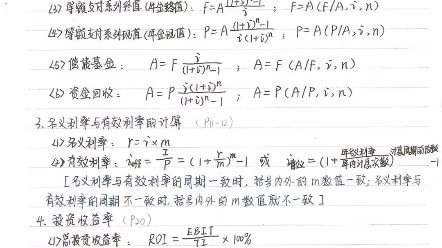 <3> 等额支付系列终值(年金终值): F=A\frac{(1+i)^n-1}{i} ; F=A(F/A,i,n)
<4> 等额支付系列现值(年金现值): P=A\frac{(1+i)^n-1}{i(1+i)^n} ; P=A(P/A,i,n)
<5> 偿债基金: A=F\frac{i}{(1+i)^n-1} ; A=F(A/F,i,n)
<6> 资金回收: A=P\frac{i(1+i)^n}{(1+i)^n-1} ; A=P(A/P,i,n)
3. 名义利率与有效利率的计算 (P11-12)
<1> 名义利率: r=i×m
<2> 有效利率: i_{eff}=\frac{I}{P}=(1+\frac{r}{m})^m-1 或 i=(1+\frac{年名义利率}{年内计息次数})-1
[名义利率与有效利率的周期一致时, 括号内外的m数值一致; 名义利率与
有效利率的周期不一致时, 括号内外的m数值就不一致]
4. 投资收益率 (P20)
<1> 总投资收益率: ROI=\frac{EBIT}{TI}×100%